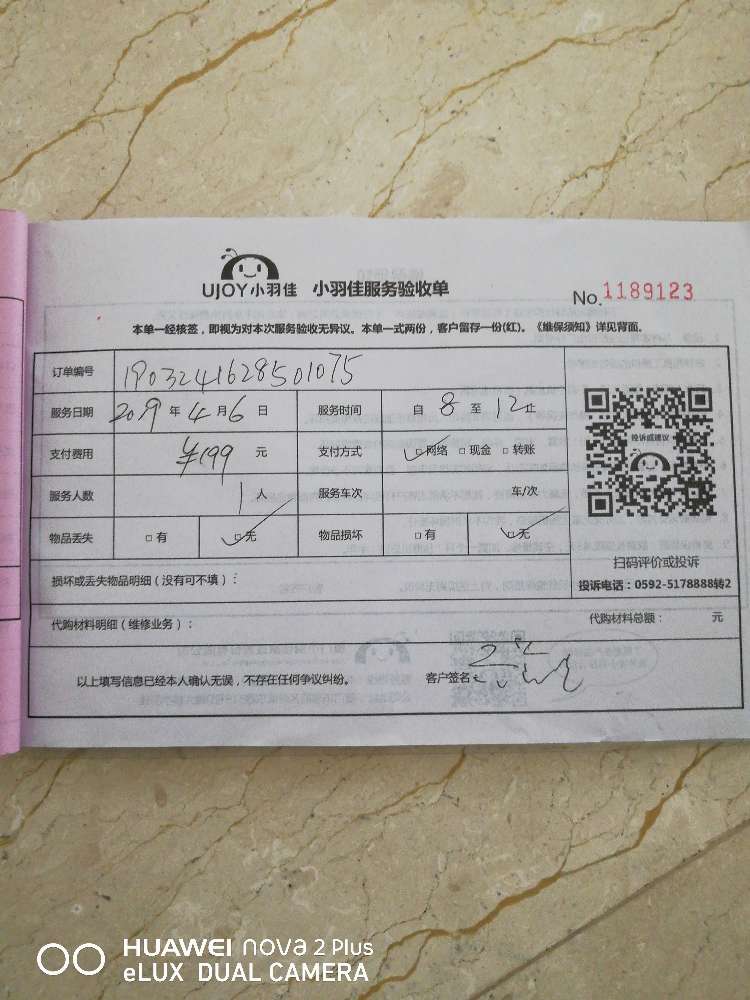 UJOY小羽佳 小羽佳服务验收单
No.1189123
本单一经核签，即视为对本次服务验收无异议。本单一式两份，客户留存一份(红)。《维保须知》详见背面。
订单编号 1903241628501075
服务日期 2019年4月6日 服务时间 自8至12止
投诉或建议
支付费用 ¥199元 支付方式 □网络 □现金 □转账
服务人数 1人 服务车次 车/次
物品丢失 □有 □无 物品损坏 □有 □无
扫码评价或投诉
损坏或丢失物品明细（没有可不填）：
投诉电话：0592-5178888转2
代购材料明细（维修业务）： 代购材料总额： 元
以上填写信息已经本人确认无误，不存在任何争议纠纷。 客户签名：
HUAWEI nova 2 Plus
eLUX DUAL CAMERA